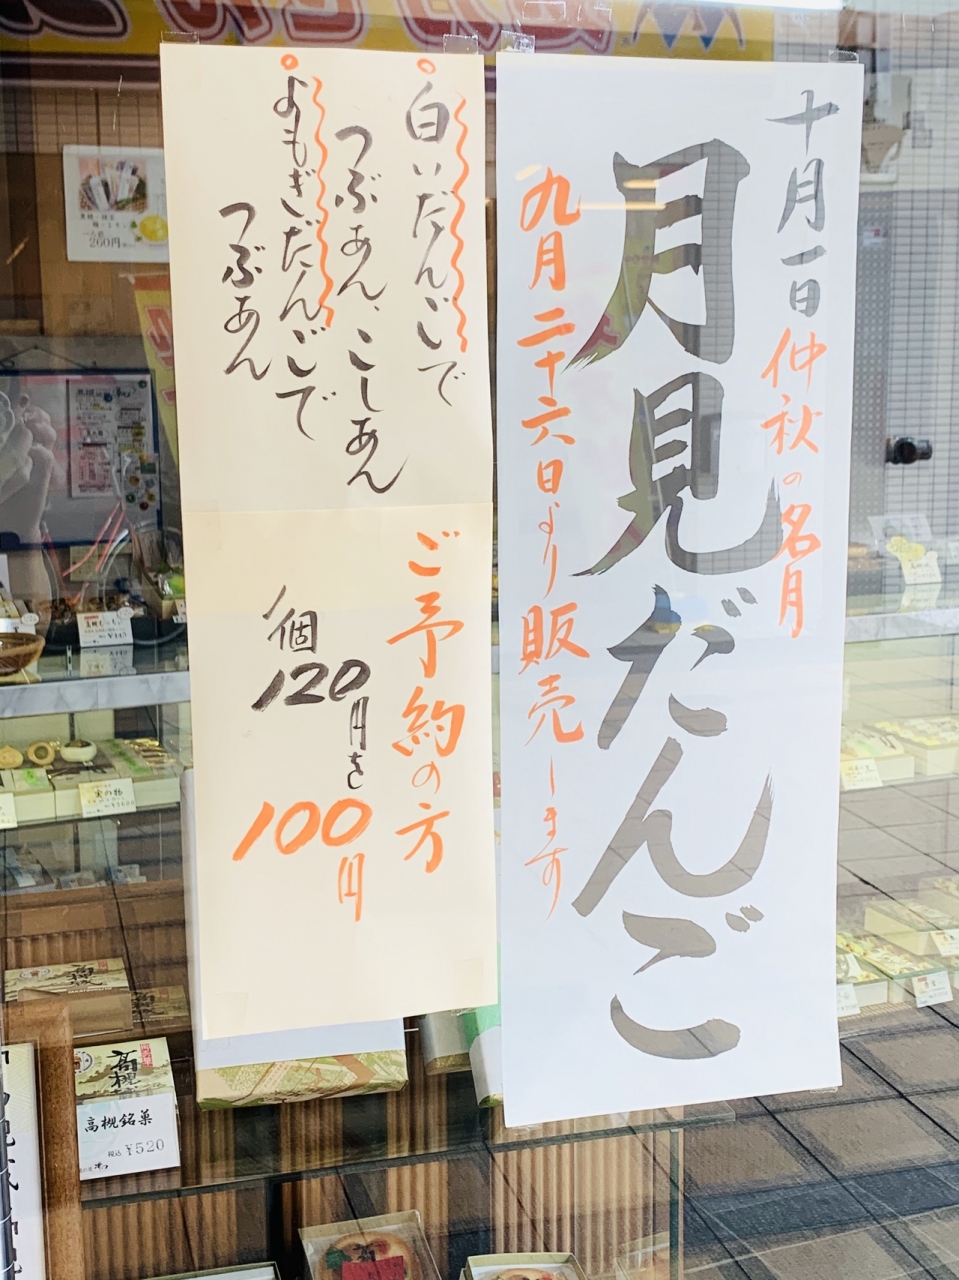 十月一日仲秋の名月
月見だんご
九月二十六日より販売します
白いだんごで
つぶあん、こしあん
よもぎだんごで
つぶあん
ご予約の方
1個
120円を
100円
260円
高槻
高槻銘菓
税込 ¥520